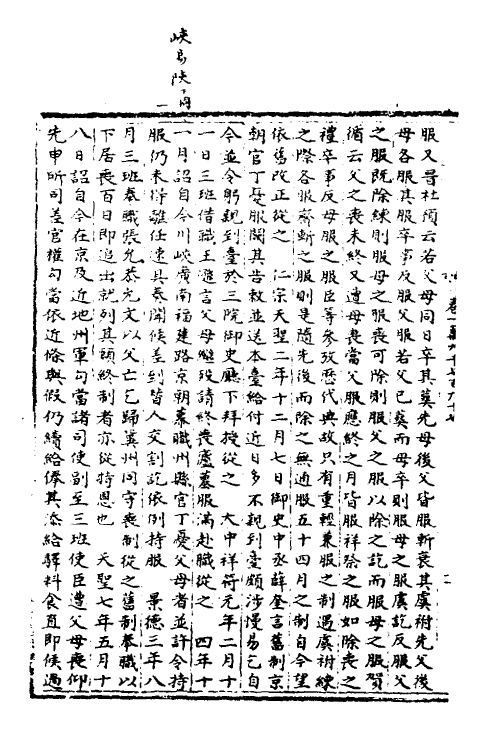 峽易陝下同
卷一萬九千七百九十七
二
服又晉杜預云若父母同日卒其葬先母後父皆服斬衰其虞祔先父後
母各服其服卒事反服父服若父已葬而母卒則服母之服虞訖反服父
之服既除練則服母之服喪可除則服父之服以除之訖而服母之服賀
循云父之喪未終又遭母喪當父服應終之月皆服祥祭之服如除喪之
禮卒事反母服之服臣等參攷歷代典故只有重輕兼服之制遇虞祔練
之際各服齊斬之服則是隨先後而除之無通服五十四月之制自今望
依舊改正從之 仁宗天聖二年十二月七日御史中丞薛奎言舊制京
朝官丁憂服闋其告敕並送本臺給付近日多不親到臺頗涉慢易乞自
今並令躬親到臺於三院御史廳下拜授從之 大中祥符元年二月十
一日三班借職王滙言父母繼歿請終喪廬墓服滿赴職從之 四年十
一月詔自今川峽廣南福建路京朝幕職州縣官丁憂父母者並許令持
服仍未得離任速具奏聞候差到替人交割訖依例持服 景德三年八
月三班奉職張允恭允文以父亡乞歸冀州同守喪制從之舊制奉職以
下居喪百日即追出就列其願終制者亦從特恩也 天聖七年五月十
八日詔自今在京及近地州軍勾當諸司使副至三班使臣遭父母喪仰
先申所司差官權勾當依近條與假仍續給俸其添給驛料食直即候過